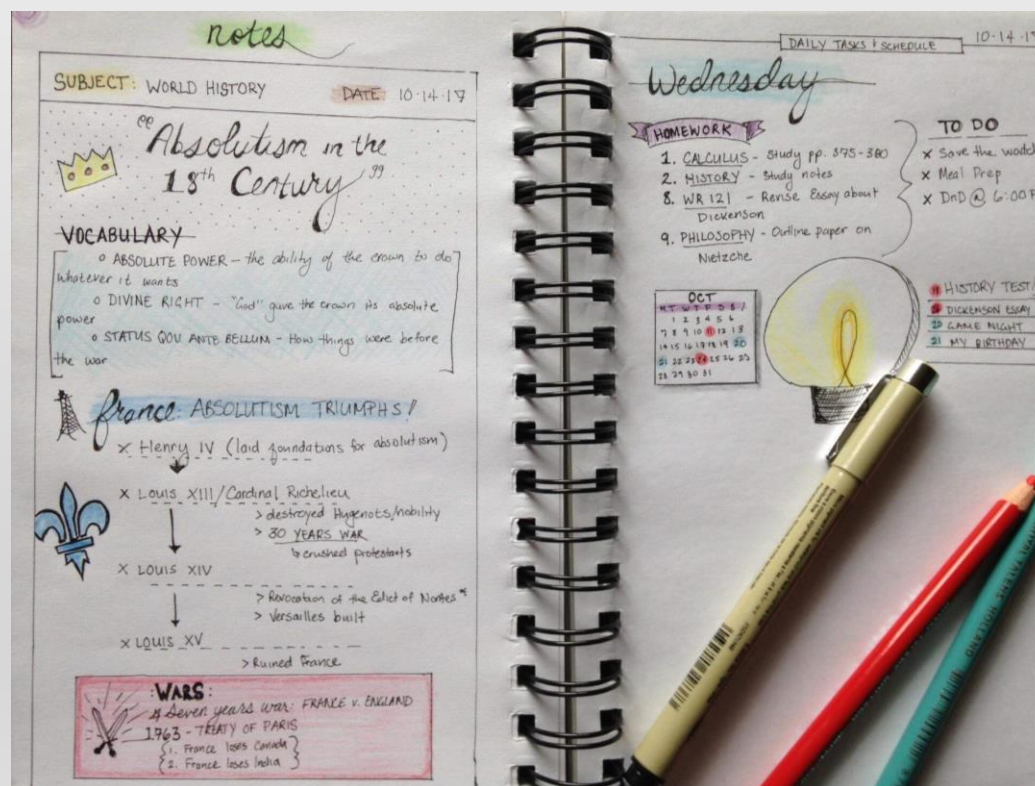 notes
SUBJECT: WORLD HISTORY DATE 10.14.17
"Absolutism in the
18th Century"
VOCABULARY
ABSOLUTE POWER - the ability of the crown to do
whatever it wants
DIVINE RIGHT - "God" gave the crown its absolute
power
STATUS QOU ANTE BELLUM - How things were before
the war
france: ABSOLUTISM TRIUMPHS!
x Henry IV (laid foundations for absolutism)
x Louis XIII/Cardinal Richelieu
> destroyed Hugenots/nobility
> 30 YEARS WAR
↳ crushed protestants
x Louis XIV
> Revocation of the Edict of Nantes*
> Versailles built
x Louis XV
> Ruined France
:WARS:
Seven years war: FRANCE V. ENGLAND
1763 - TREATY OF PARIS
1. France loses Canada
2. France loses India
DAILY TASKS & SCHEDULE 10.14.17
Wednesday
HOMEWORK
1. CALCULUS - Study pp. 375-380
2. HISTORY - Study notes
8. WR 121 - Revise Essay about
Dickenson
9. PHILOSOPHY - Outline paper on
Nietzche
TO DO
x Save the
x Meal Prep
x DnD @ 6:00
OCT
M T W T F S S
1 2 3 4 5 6
7 8 9 10 11 12 13
14 15 16 17 18 19 20
21 22 23 24 25 26
28 29 30 31
11 HISTORY TEST
24 DICKENSON ESSAY
20 GAME NIGHT
21 MY BIRTHDAY